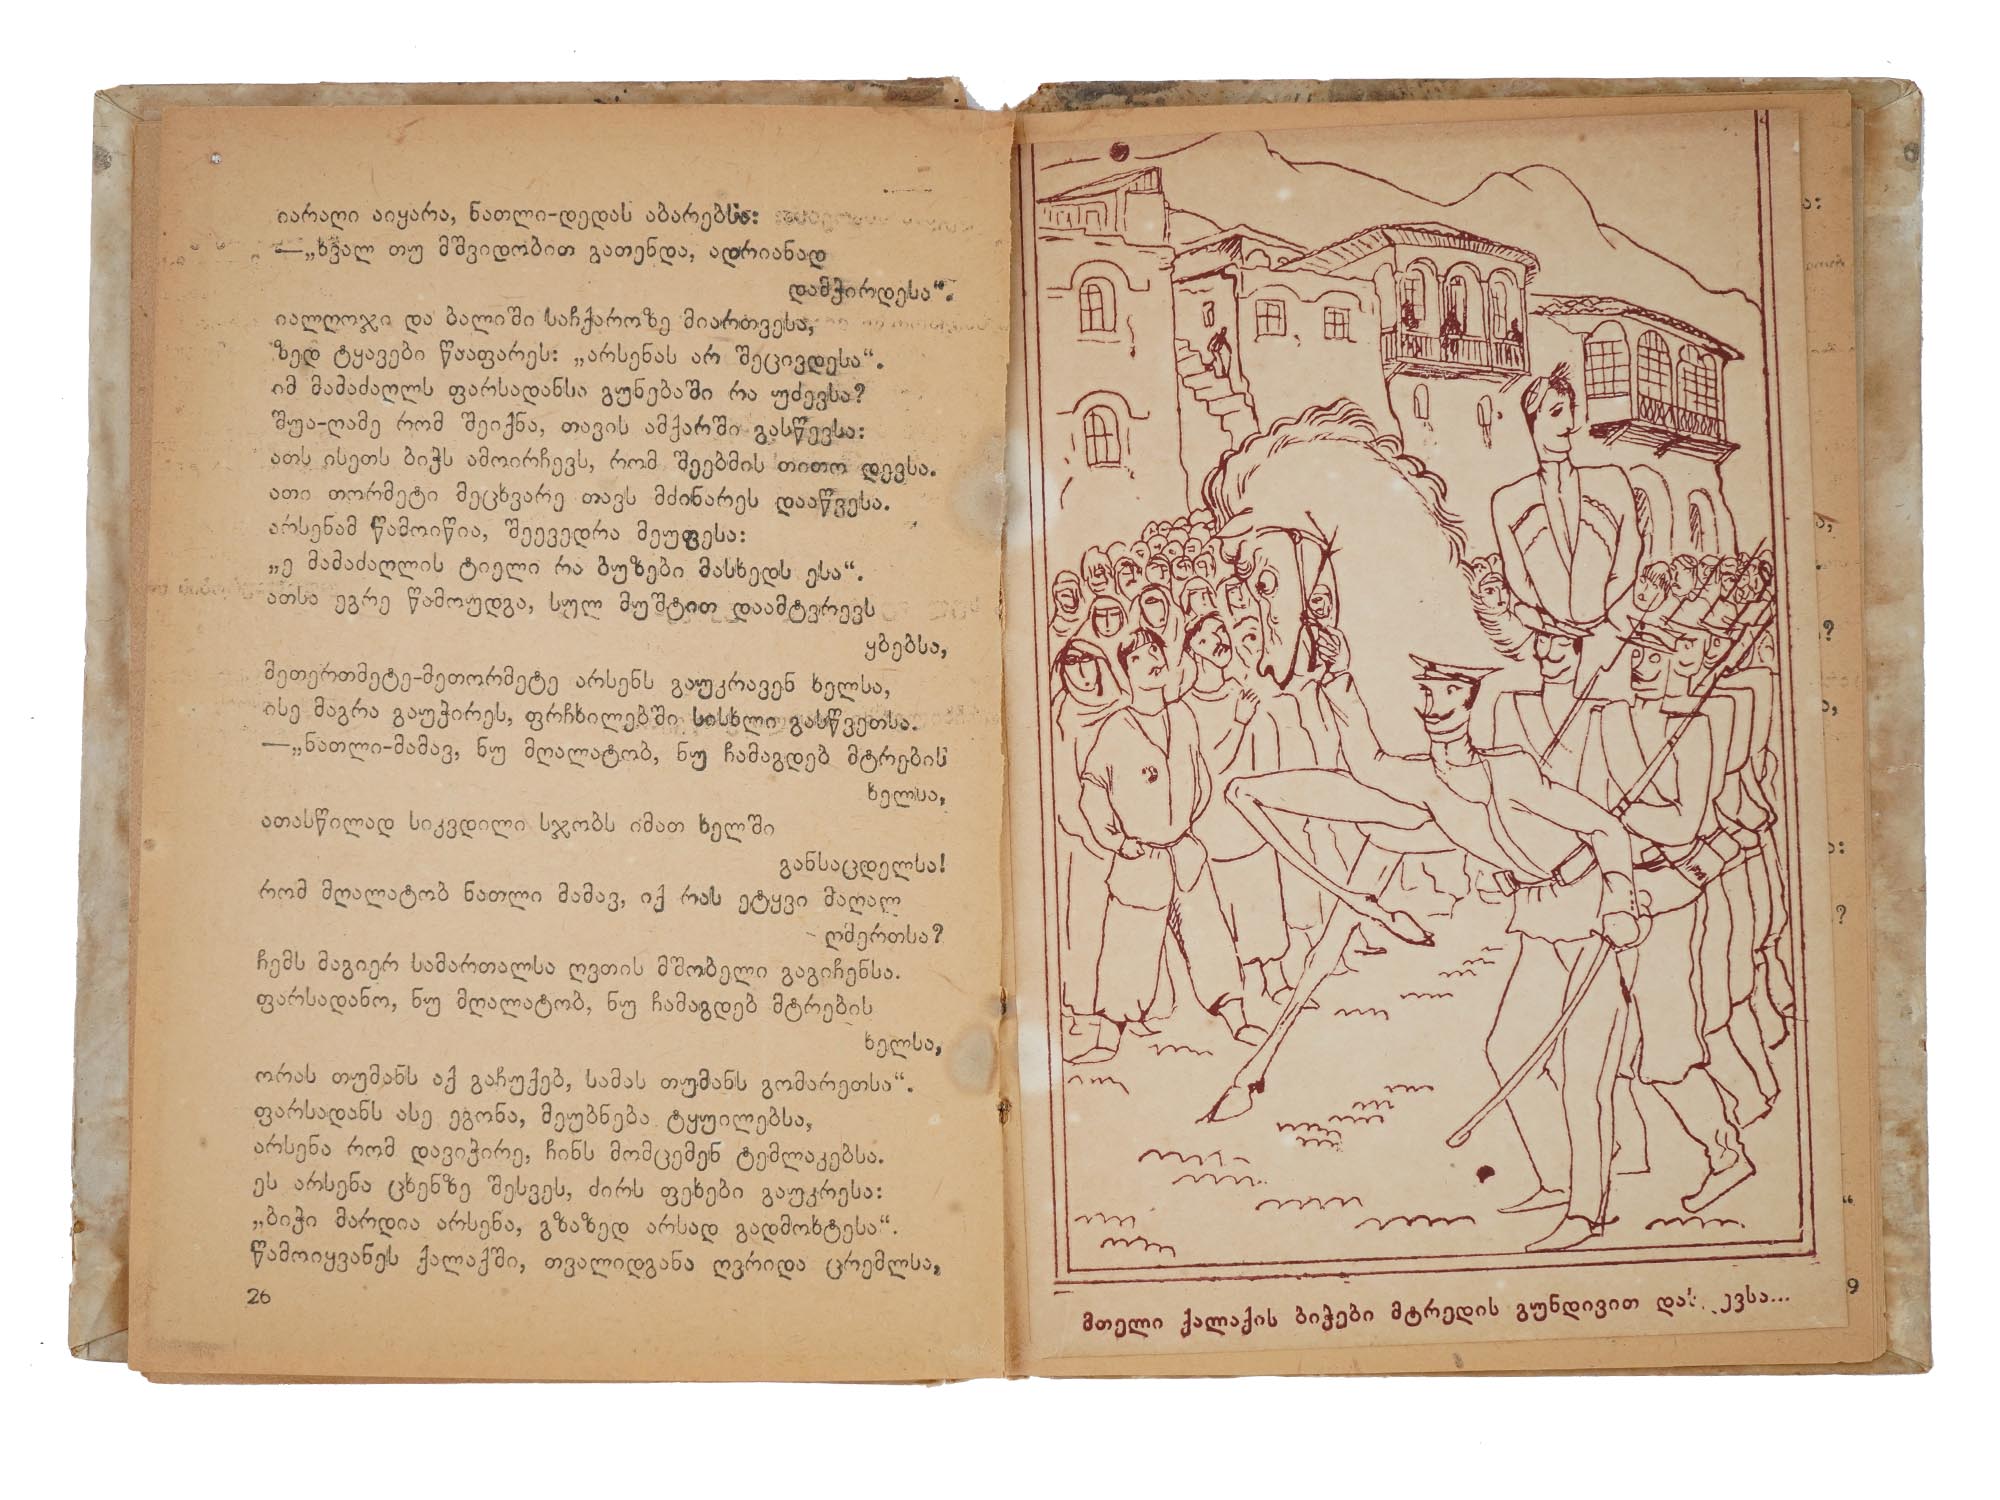 იარაღი აიყარა, ნათლი-დედას აბარებსა:
—„ხვალ თუ მშვიდობით გათენდა, ადრიანად
დამჭირდესა“.
იალღოჯი და ბალიში საჩქაროზე მიართვესა,
ზედ ტყავები წააფარეს: „არსენას არ შეცივდესა“.
იმ მამაძაღლს ფარსადანსა გუნებაში რა უძევსა?
შუა-ღამე რომ შეიქნა, თავის ამქარში გასწევსა:
ათს ისეთს ბიჭს ამოირჩევს, რომ შეებმის თითო დევსა.
ათი თორმეტი მეცხვარე თავს მძინარეს დააწვესა.
არსენამ წამოიწია, შეევედრა მეუფესა:
„ე მამაძაღლის ტიელი რა ბუზები მასხედს ესა“.
ათსა ეგრე წამოუდგა, სულ მუშტით დაამტვრევს
ყბებსა,
მეთერთმეტე-მეთორმეტე არსენს გაუკრავენ ხელსა,
ისე მაგრა გაუჭირეს, ფრჩხილებში სისხლი გასწვეთსა.
—„ნათლი-მამავ, ნუ მღალატობ, ნუ ჩამაგდებ მტრების
ხელსა,
ათასწილად სიკვდილი სჯობს იმათ ხელში
განსაცდელსა!
რომ მღალატობ ნათლი მამავ, იქ რას ეტყვი მაღალ
ღმერთსა?
ჩემს მაგიერ სამართალსა ღვთის მშობელი გაგიჩენსა.
ფარსადანო, ნუ მღალატობ, ნუ ჩამაგდებ მტრების
ხელსა,
ორას თუმანს აქ გაჩუქებ, სამას თუმანს გომარეთსა“.
ფარსადანს ასე ეგონა, მეუბნება ტყუილებსა,
არსენა რომ დავიჭირე, ჩინს მომცემენ ტემლაკებსა.
ეს არსენა ცხენზე შესვეს, ძირს ფეხები გაუკრესა:
„ბიჭი მარდია არსენა, გზაზედ არსად გადმოხტესა“.
წამოიყვანეს ქალაქში, თვალიდგანა ღვრიდა ცრემლსა,
26
მთელი ქალაქის ბიჭები მტრედის გუნდივით
9